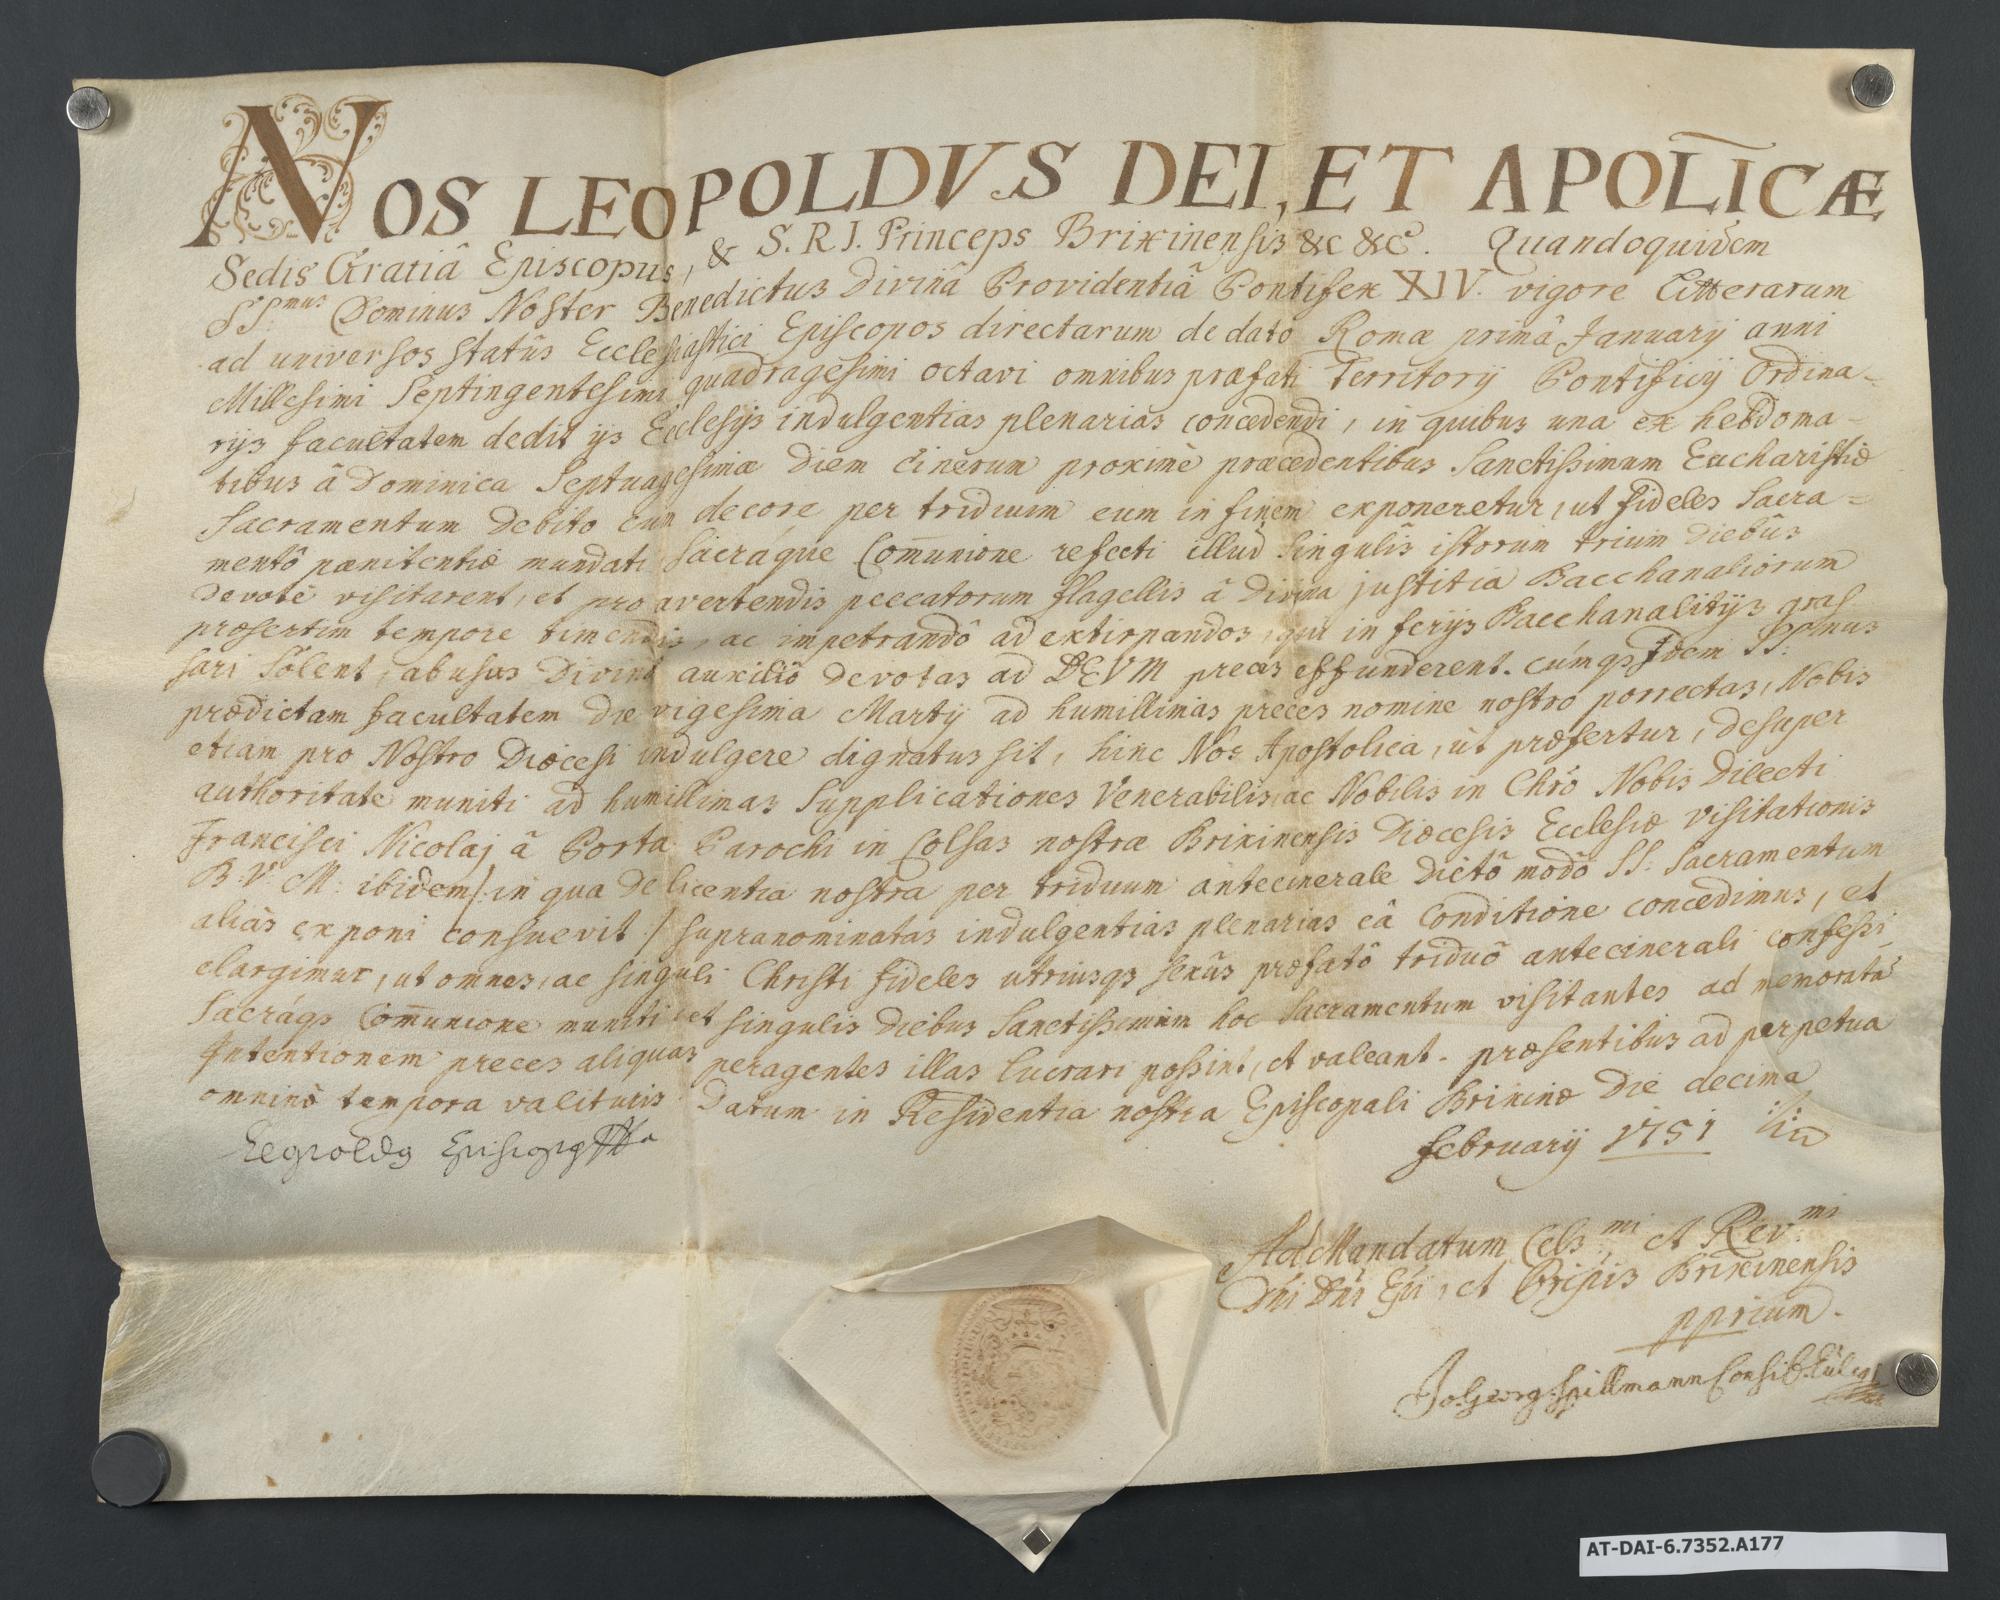 NOS LEOPOLDVS DEI, ET APOLĪCÆ
Sedis Gratiâ Episcopus, & S. R. J. Princeps Brixinensis &c &c. Quandoquidem
SS.mus Dominus Noster Benedictus Divinâ Providentiâ Pontifex XIV. vigore Litterarum
ad universos statûs Ecclesiastici Episcopos directarum de dato Romæ primâ January anni
Millesimi Septingentesimi quadragesimi octavi omnibus præfati Territory Pontificy Ordina=
rys facultatem dedit ys Ecclesys indulgentias plenarias concedendi, in quibus una ex hebdoma=
tibus â Dominica Septuagesimæ diem cinerum proximè præcedentibus Sanctissimum Eucharistiæ
Sacramentum debito cum decore per triduum eum in finem exponeretur, ut fideles Sacra=
mentô pænitentiæ mundati sacráque Com̄unione refecti illud singulis istorum trium diebûs
devotè visitarent, et pro avertendis peccatorum flagellis â Divina justitia Bacchanaliorum
præsertim tempore timendis, ac impetrandô ad extirpandos, qui in ferys Bacchanalitys gras
sari solent, abusus Divinô auxiliô devotas ad DEVM preces effunderent. cúmqs Idem SS:mus
prædictam facultatem die vigesima Marty ad humillimas preces nomine nostro porrectas, Nobis
etiam pro Nostro Diæcesi indulgere dignatus sit, hinc Nos Apostolica, ut præfertur, desuper
authoritate muniti ad humillimas Supplicationes Venerabilis, ac Nobilis in Chrō Nobis Dilecti
Francisci Nicolaj â Porta Parochi in Colsas nostræ Brixinensis Diæcesis Ecclesiæ visitationis
B. V. M: ibidem /: in qua de licentia nostra per triduum antecinerale dictô modô SS: Sacramentum
aliàs exponi consuevit :/ supranominatas indulgentias plenarias eâ Conditione concedimus, et
elargimur, ut omnes, ac singuli Christi fideles utriusqs sexûs præfatô triduô antecinerali confessi,
Sacráqs Com̄unione muniti et singulis diebus Sanctissimum hoc Sacramentum visitantes ad memoratã
Intentionem preces aliquas peragentes illas lucrari possint, et valeant. præsentibus ad perpetua
omninò tempora valituris. Datum in Residentia nostra Episcopali Brixinæ die decima
february 1751
Leopoldg Episcopg
Ad Mandatum Cels:mi et Rev:mi
Dñi Dñi Epī, et Prīpis Brixinensis
pprium.
Jo. Georg Spillmann Consil.
AT-DAI-6.7352.A177